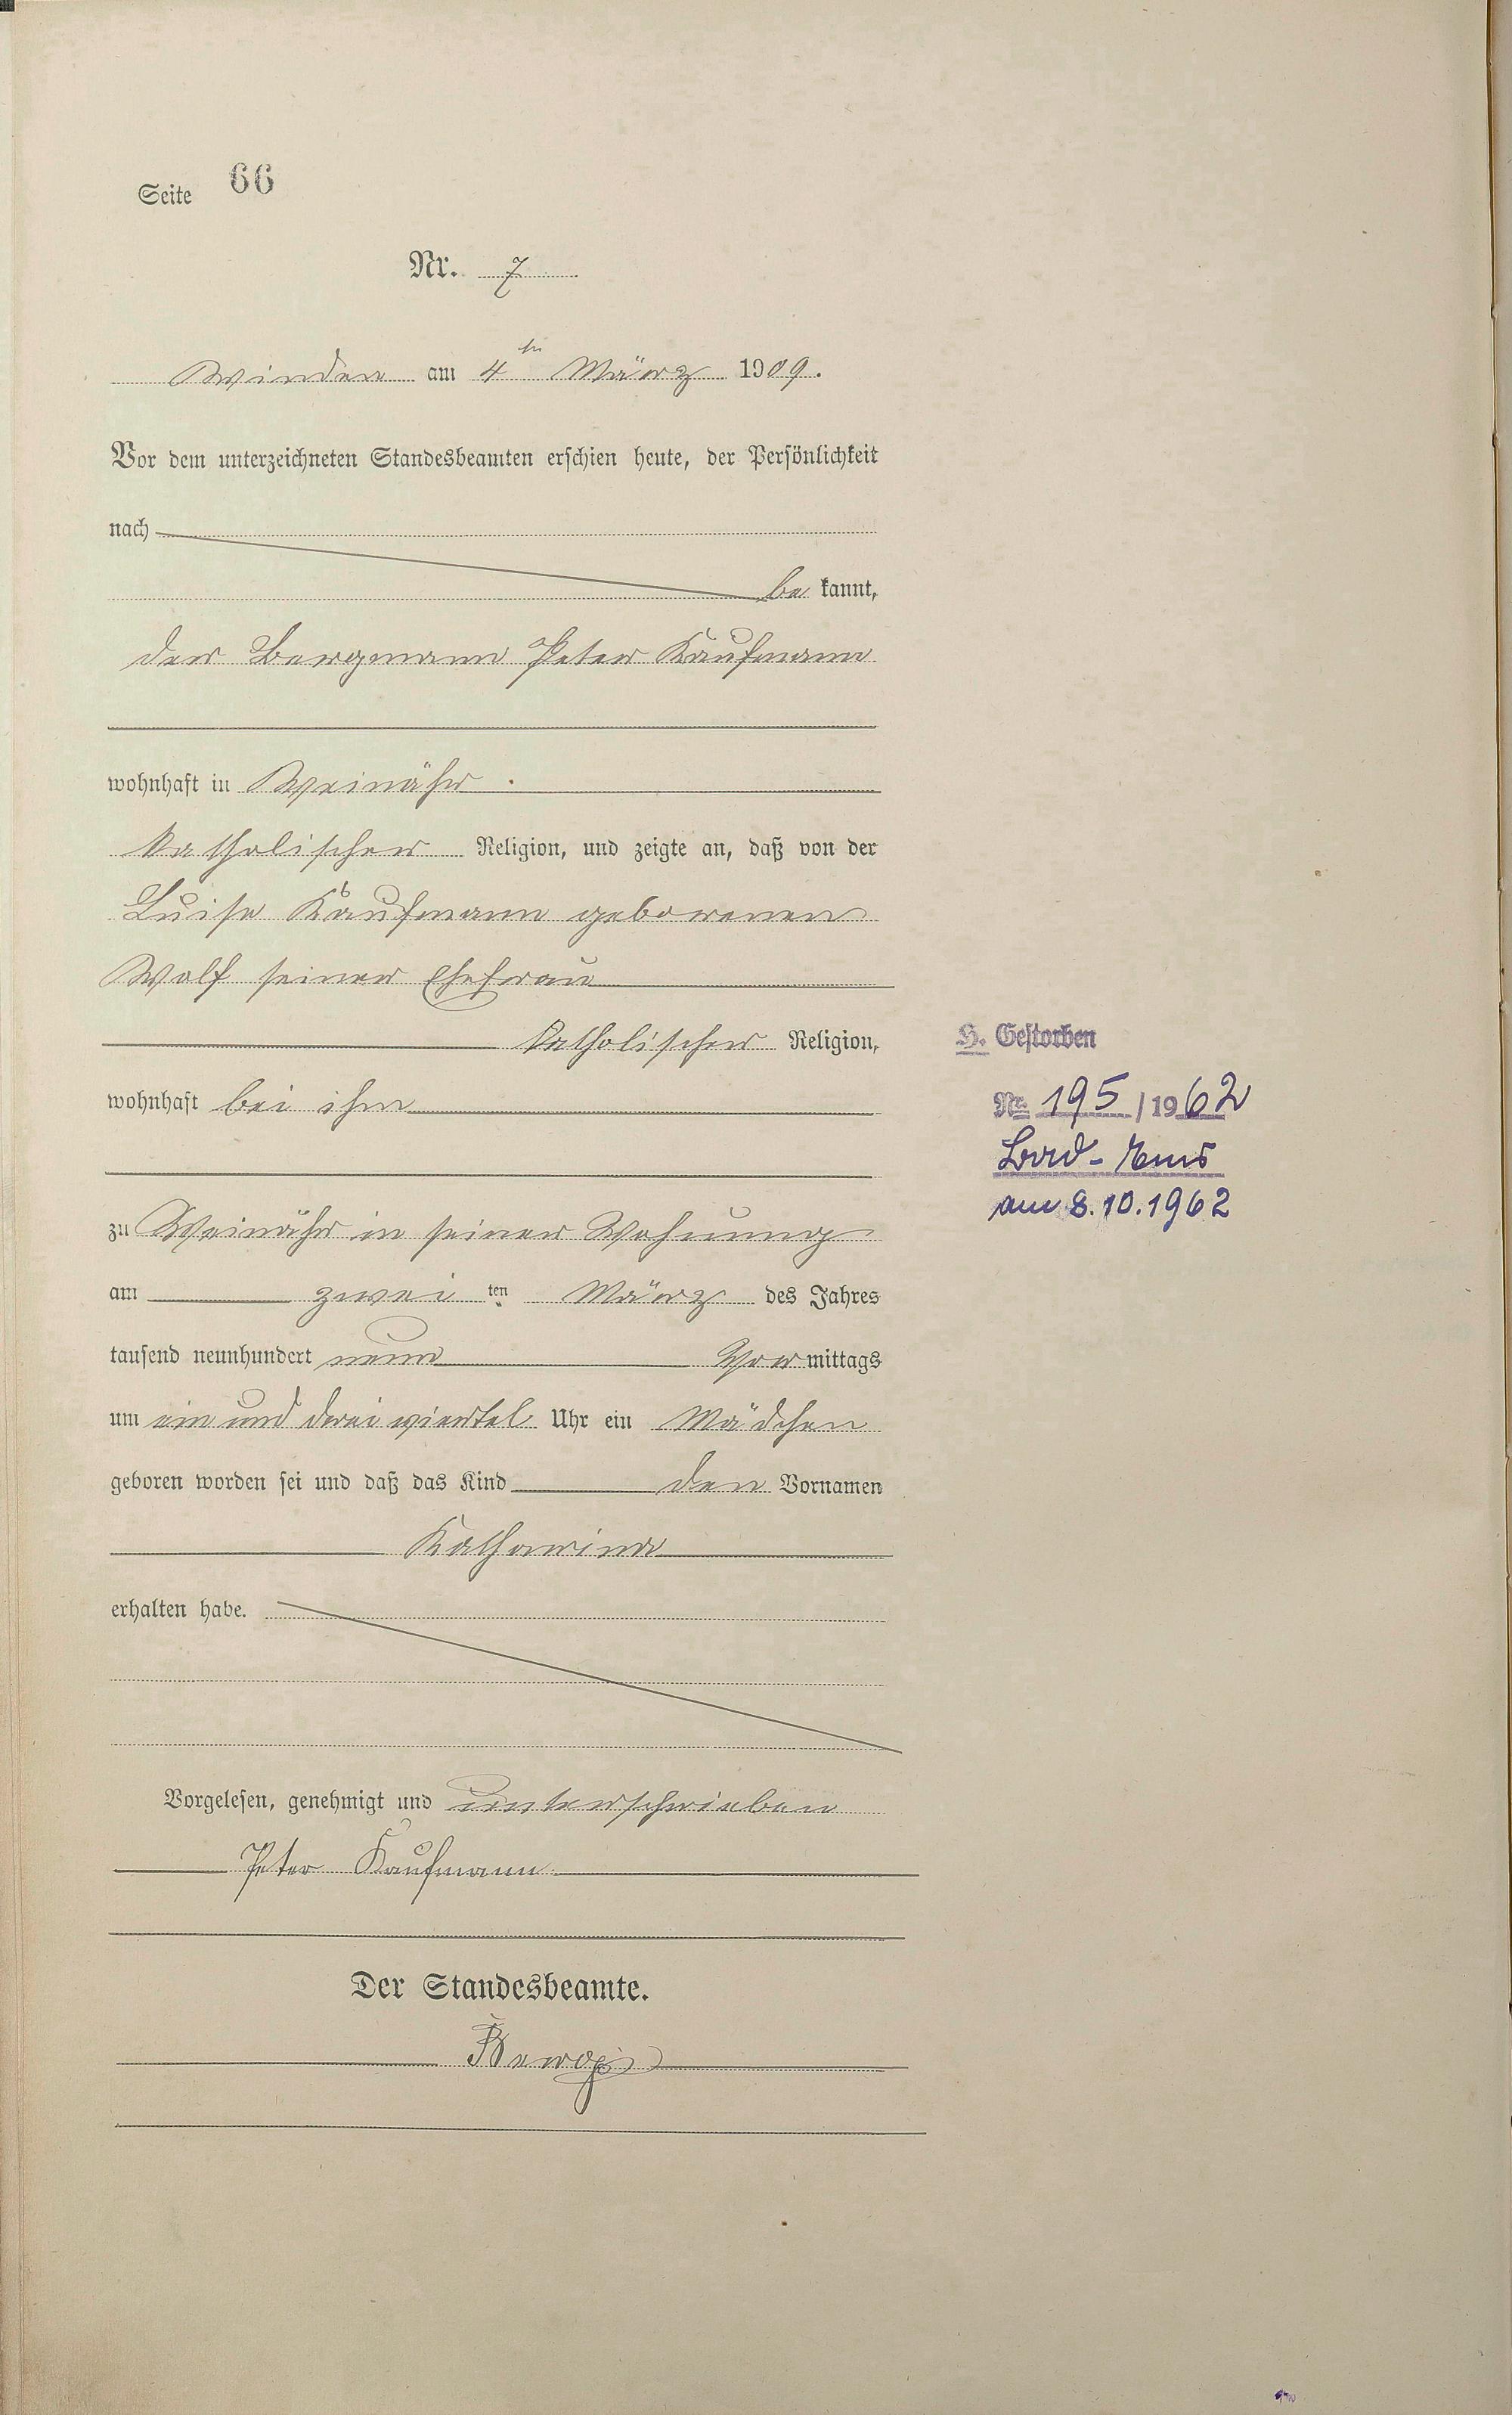 Seite 66
Nr. 7
Winden am 4ten März 1909.
Vor dem unterzeichneten Standesbeamten erschien heute, der Persönlichkeit
nach
be kannt,
der Bergmann Peter Kaufmann
wohnhaft in Weinähr.
katholischer Religion, und zeigte an, daß von der
Luise Kaufmann geborenen
Wolf seiner Ehefrau
katholischer Religion,
wohnhaft bei ihm
zu Weinähr in seiner Wohnung
am zwei ten März des Jahres
tausend neunhundert neun Vormittags
um ein und drei viertel Uhr ein Mädchen
geboren worden sei und daß das Kind den Vornamen
Katharina
erhalten habe.
Vorgelesen, genehmigt und unterschrieben
Peter Kaufmann
Der Standesbeamte.
H. Gestorben
Nr. 195/1962
Bad-Ems
am 8.10.1962